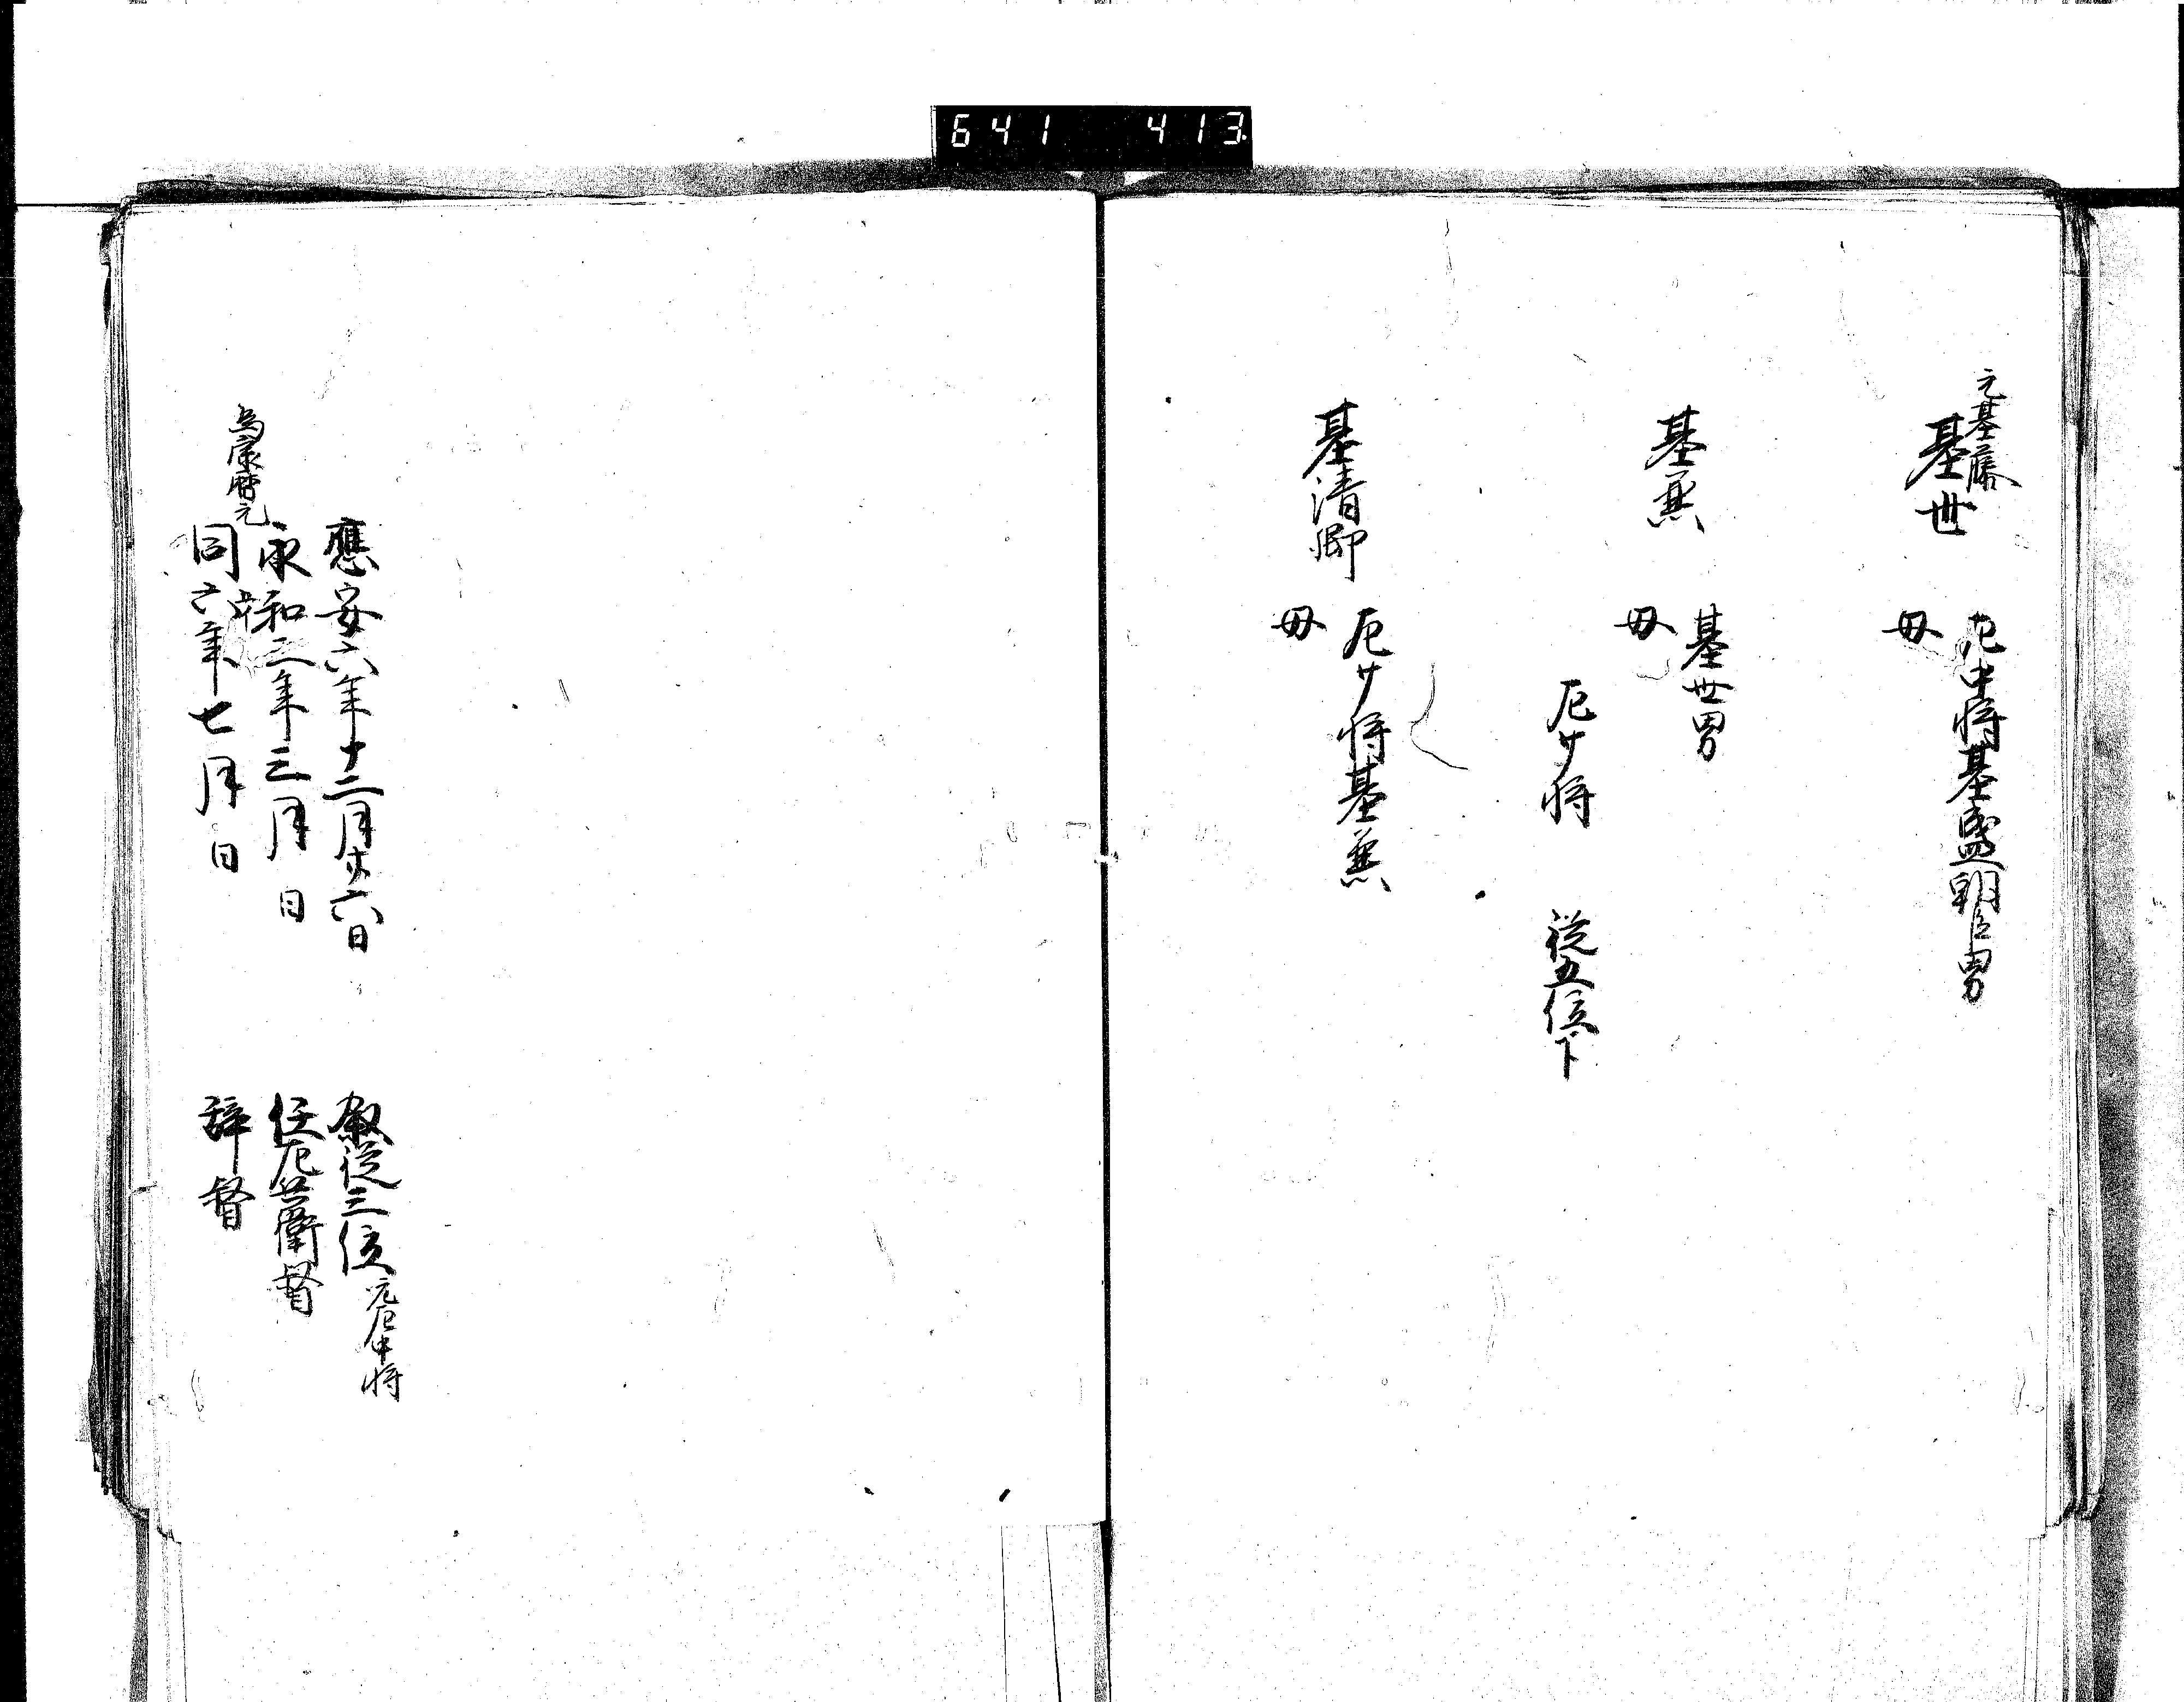 641 413
元基藤
基世
左中将基盛朝臣男
母
基兼
基世男
母
左少将 従五位下
基清卿
左少将基兼
母
應安六年十二月廿六日 叙従三位元左中将
永和二年三月日 任左兵衛督
為康暦元
同六年七月日 辞督